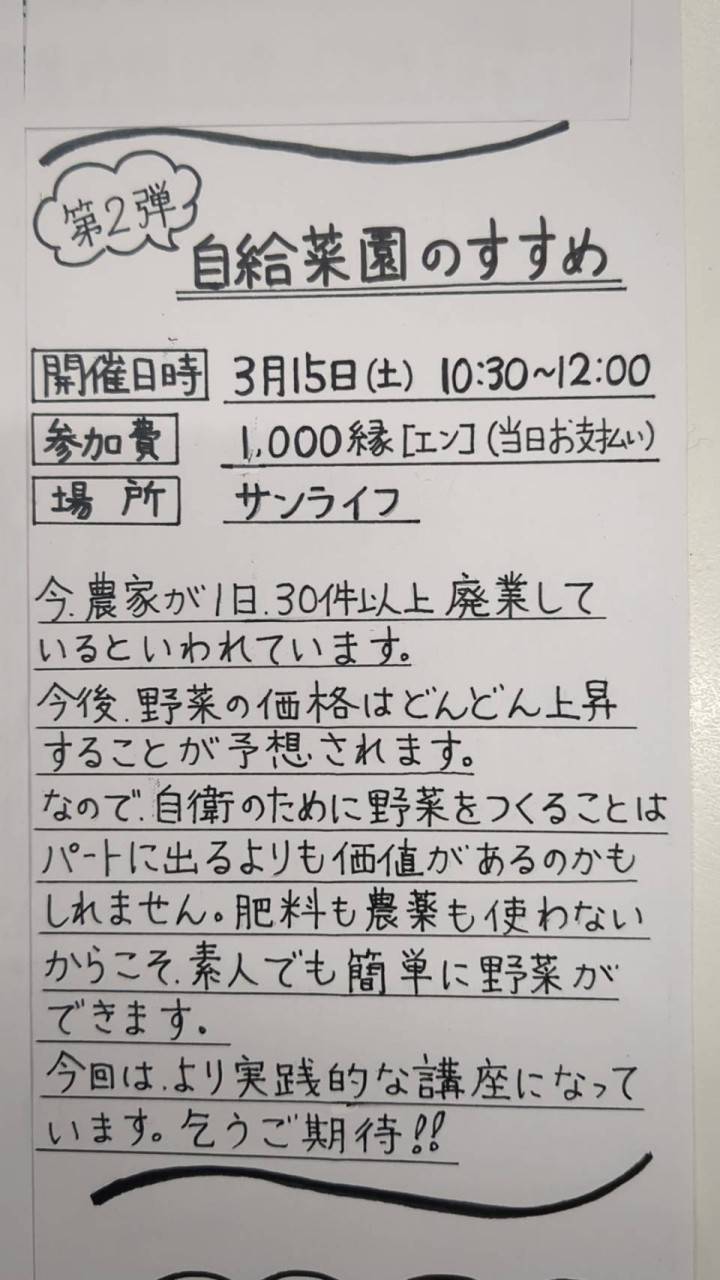 第2弾
自給菜園のすすめ
開催日時 3月15日(土) 10:30~12:00
参加費 1,000縁[エン](当日お支払い)
場所 サンライフ
今、農家が1日、30件以上廃業して
いるといわれています。
今後、野菜の価格はどんどん上昇
することが予想されます。
なので、自衛のために野菜をつくることは
パートに出るよりも価値があるのかも
しれません。肥料も農薬も使わない
からこそ、素人でも簡単に野菜が
できます。
今回は、より実践的な講座になって
います。乞うご期待!!